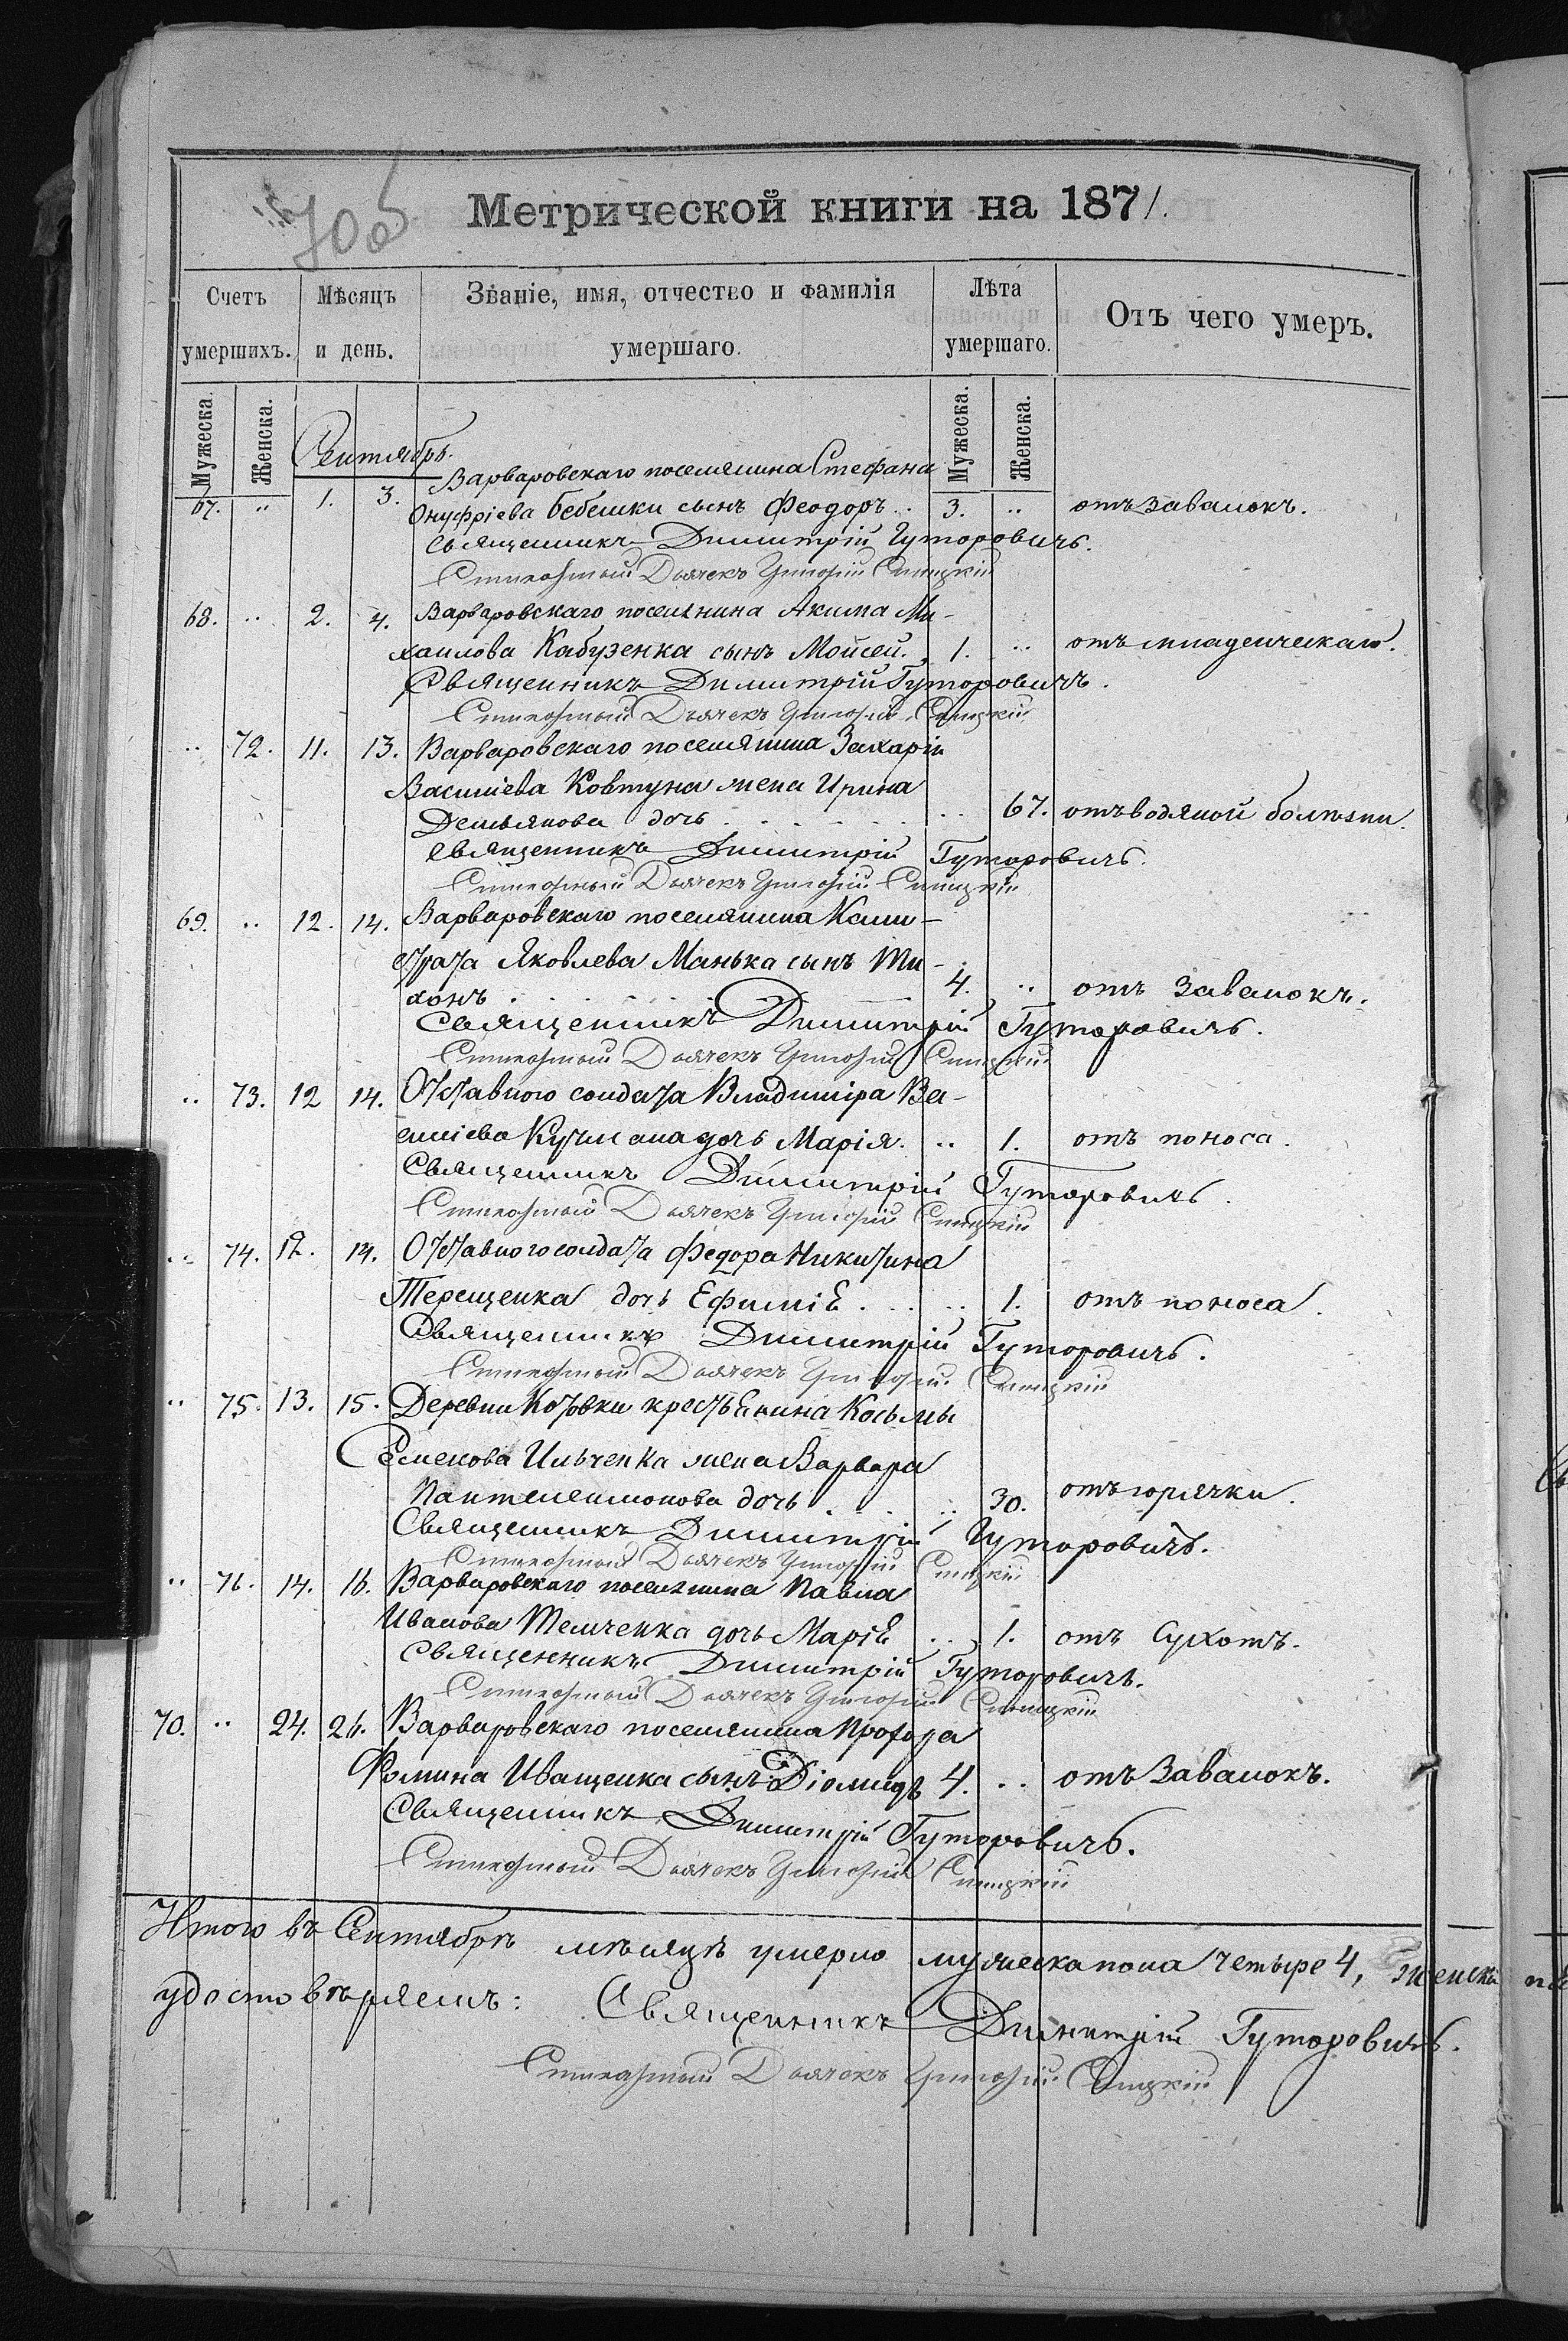 705
Метрической книги на 1871.
Счетъ умершихъ. Мѣсяцъ и день. Званіе, имя, отчество и фамилія умершаго. Лѣта умершаго. Отъ чего умеръ.
Мужеска. Женска. Мужеска. Женска.
Сентябрь.
Варваровскаго поселянина Стефана
67. .. 1. 3. Онуфріева Бебешки сынъ Феодоръ.. 3. .. отъ завалокъ.
Священникъ Димитрій Гуторовичъ.
Стихарный Дьячекъ Григорій Спицкій
68. .. 2. 4. Варваровскаго поселянина Акима Ми-
хаилова Кабузенка сынъ Мойсей. 1. .. отъ младенческаго.
Священникъ Димитрій Гуторовичъ.
Стихарный Дьячекъ Григорій Спицкій
.. 72. 11. 13. Варваровскаго поселянина Захарія
Василіева Ковтуна жена Ирина
Демьянова дочь .. 67. отъ водяной болѣзни.
Священникъ Димитрій Гуторовичъ.
Стихарный Дьячекъ Григорій Спицкій
69. .. 12. 14. Варваровскаго поселянина Кали-
страта Яковлева Манька сынъ Ти-
хонъ 4. .. отъ завалокъ.
Священникъ Димитрій Гуторовичъ.
Стихарный Дьячекъ Григорій Спицкій
.. 73. 12 14. Отставного солдата Владиміра Ва-
силіева Кучмана дочь Марія. .. 1. отъ поноса.
Священникъ Димитрій Гуторовичъ.
Стихарный Дьячекъ Григорій Спицкій
.. 74. 12. 14. Отставного солдата Федора Никитина
Терещенка дочь Ефимія .. 1. отъ поноса.
Священникъ Димитрій Гуторовичъ.
Стихарный Дьячекъ Григорій Спицкій
.. 75. 13. 15. Деревни Котовки крестьянина Косьмы
Семенова Ильченка жена Варвара
Пантелеимонова дочь .. 30. отъ горячки.
Священникъ Димитрій Гуторовичъ.
Стихарный Дьячекъ Григорій Спицкій
.. 76. 14. 16. Варваровскаго поселянина Павла
Иванова Темченка дочь Марія .. 1. отъ Сухотъ.
Священникъ Димитрій Гуторовичъ.
Стихарный Дьячекъ Григорій Спицкій
70. .. 24. 26. Варваровскаго поселянина Прохора
Фомина Иващенка сынъ Діомидъ 4. .. отъ завалокъ.
Священникъ Димитрій Гуторовичъ.
Стихарный Дьячекъ Григорій Спицкій
Итого въ Сентябрѣ мѣсяцѣ умерло мужеска пола четыре 4, женска
удостовѣряемъ: Священникъ Димитрій Гуторовичъ.
Стихарный Дьячекъ Григорій Спицкій